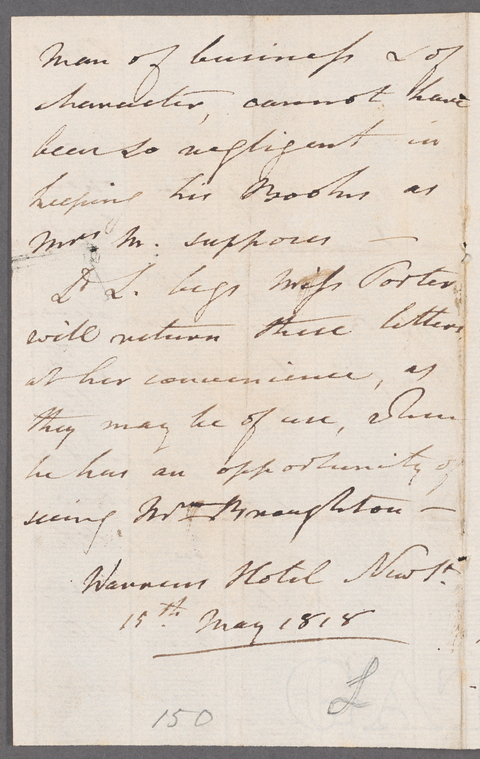 man of business & of
character, cannot have
been so negligent in
keeping his Books as
Mrs M. supposes —
Dr L. begs Miss Porter
will return these letters
at her convenience, as
they may be of use, when
he has an opportunity of
seeing Mr Broughton —
Warrens Hotel New St.
15th May 1818
150
L